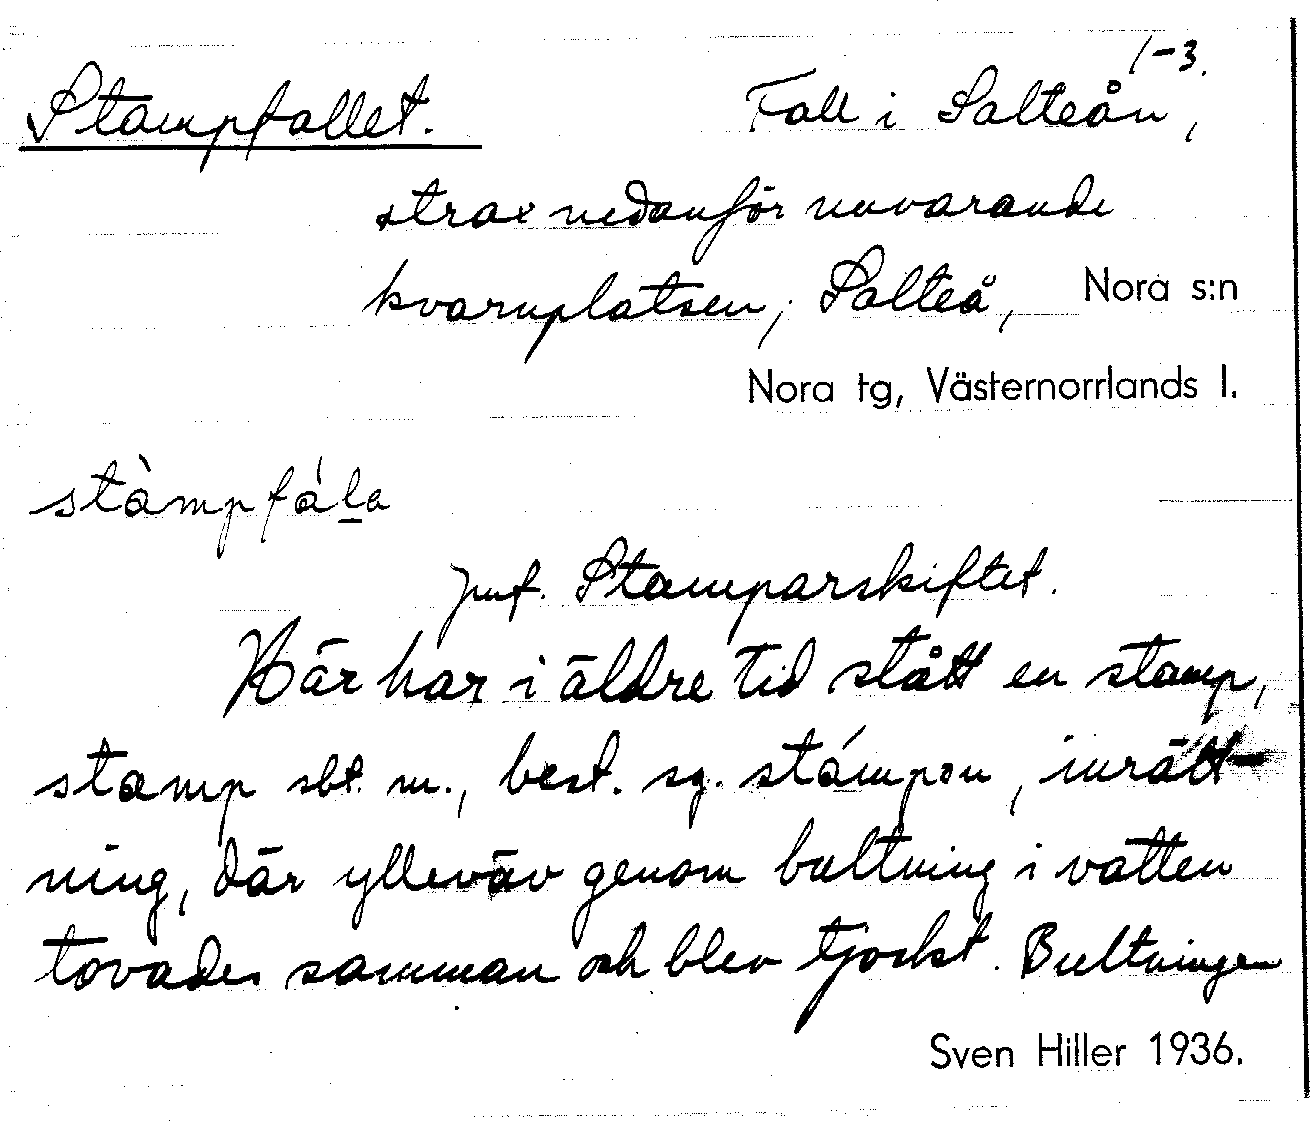 1-3.
Stampfallet. Fall i Salteån,
strax nedanför nuvarande
kvarnplatsen, Salteå, Nora s:n
Nora tg, Västernorrlands l.
stàmpfála
jmf. Stamparskiftet.
Här har i äldre tid stått en stamp,
stamp sbt. m., best. sg. stámpən, inrätt-
ning, där ylleväv genom bultning i vatten
tovades samman och blev tjockt. Bultningen
Sven Hiller 1936.